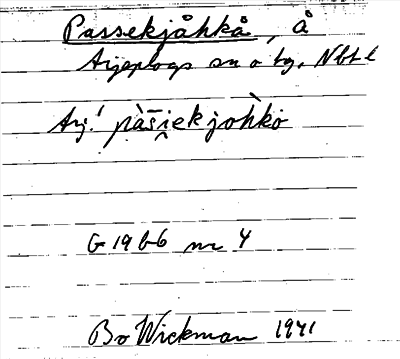 Passekjåhkå, å
Arjeplogs sn o tg, Nbt l
Arj! pàs̄i̯ekjoh̀kò
G 19 b6 nr 4
Bo Wickman 1941